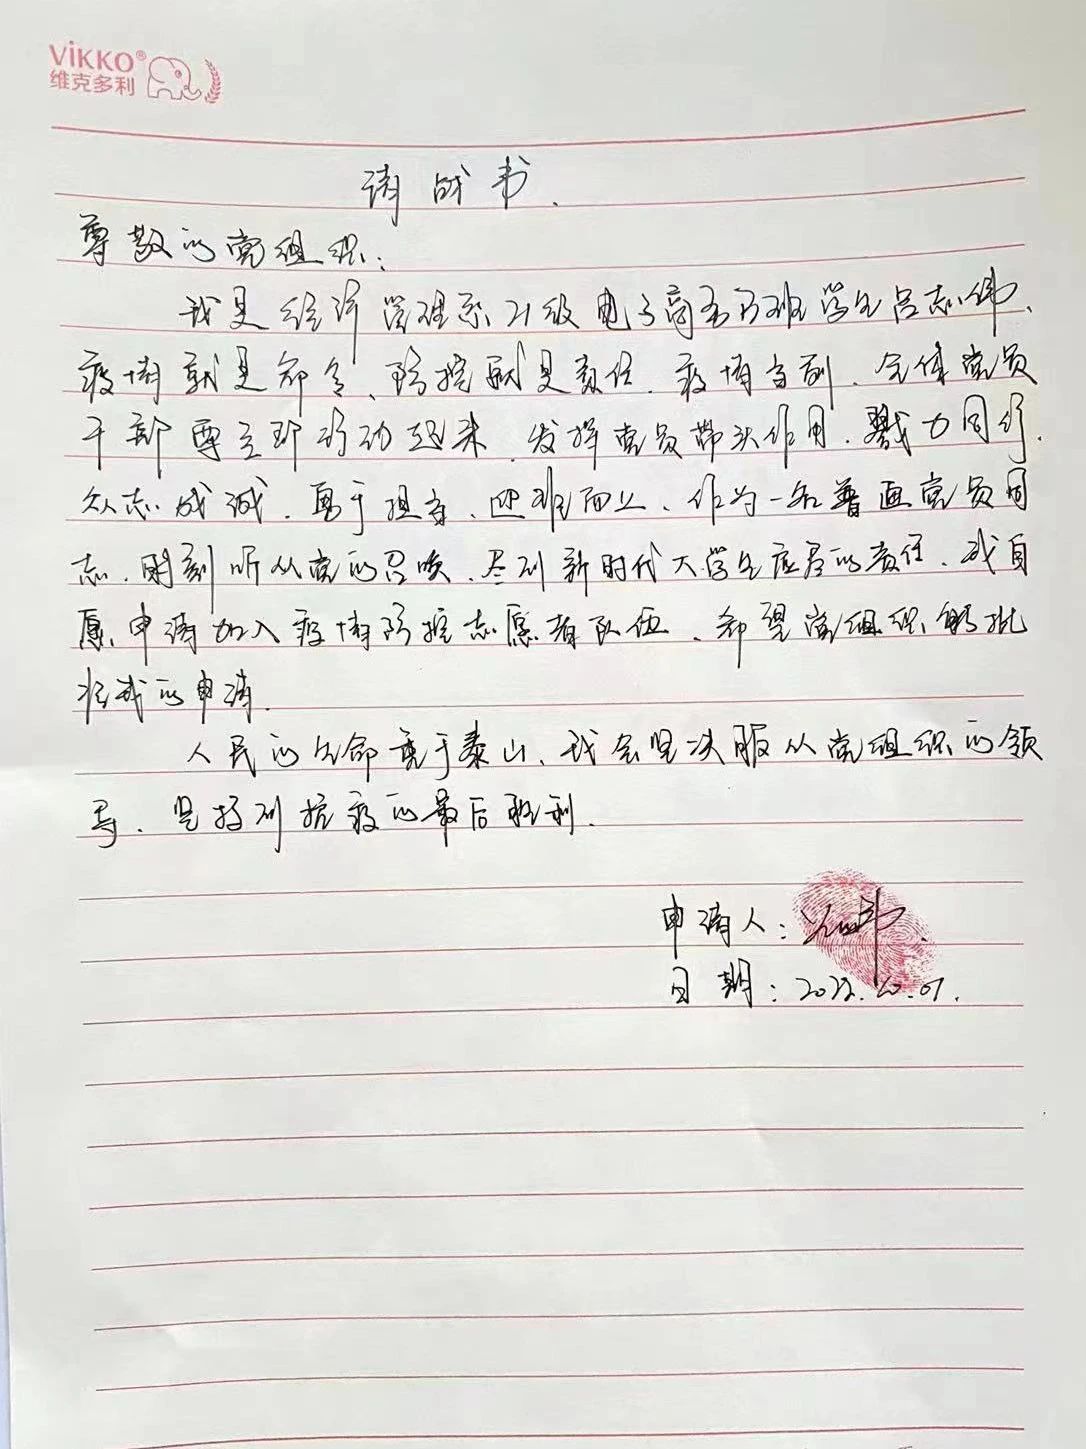 VIKKO®
维克多利
请战书.
尊敬的党组织:
我是经济管理系21级电子商务方班学生吕志伟.
疫情就是命令、防控就是责任.疫情当前.全体党员
干部要立即行动起来.发挥党员带头作用.戮力同行.
众志成诚.勇于担当、迎难而上、作为一名普通党员同
志.时刻听从党的召唤.尽到新时代大学生应尽的责任.我自
愿申请加入疫情防控志愿者队伍、希望党组织能批
准我的申请.
人民的生命重于泰山、我会坚决服从党组织的领
导.坚持到抗疫的最后胜利.
申请人:
日期:2022.10.01.